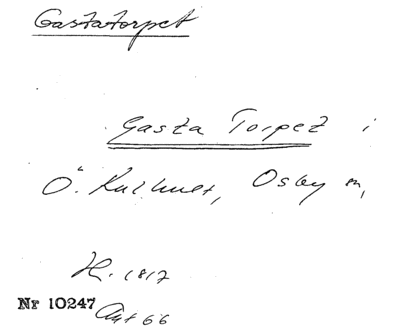 Gastatorpet
Gasta Torpet i
Ö. Kulhult, Osby sn,
H. 1817
Nr 10247
Akt 66